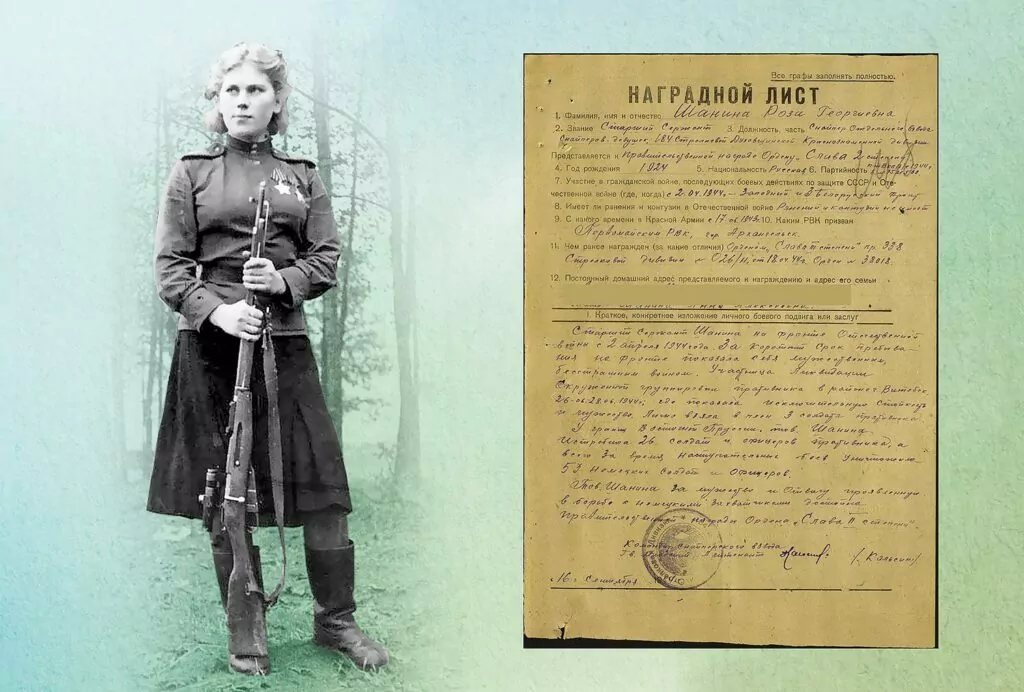 Все графы заполнять полностью.
НАГРАДНОЙ ЛИСТ
1. Фамилия, имя и отчество Шанина Роза Георгиевна
2. Звание Старший Сержант 3. Должность, часть Снайпер Отдельного взвода
Снайперов девушек 184 Стрелковой Духовщинской Краснознаменной дивизии
Представляется к Правительственной награде Ордену „Слава 2 степени
4. Год рождения 1924 5. Национальность Русская 6. Партийность
7. Участие в гражданской войне, последующих боевых действиях по защите СССР и Оте-
чественной войне (где, когда) с 2.04.1944г – Западный и 3 Белорусский фронт
8. Имеет ли ранения и контузии в Отечественной войне Ранений и контузий не имеет
9. С какого времени в Красной Армии с 17.06.1943г. 10. Каким РВК призван
Первомайским РВК, гор. Архангельск.
11. Чем ранее награжден (за какие отличия) Орденом „Слава III степени" пр. 338
Стрелковой дивизии № 026/н, от 18.04.44г. Орден № 38018.
12. Постоянный домашний адрес представляемого к награждению и адрес его семьи
Шанина Анна Алексеевна.
I. Краткое, конкретное изложение личного боевого подвига или заслуг
Старший Сержант Шанина на фронте Отечественной
войны с 2 апреля 1944 года. За короткий срок пребыва-
ния на фронте показала себя мужественным,
бесстрашным воином. Участница Ликвидации
Окруженной группировки противника в районе г. Витебск
26.06.28.06.1944г, где показала исключительную Стойкость
и мужество. Лично взяла в плен 3 солдата противника.
У границ Восточной Пруссии, тов. Шанина
Истребила 26 солдат и офицеров противника, а
всего за время наступательных боев уничтожила
53 немецких солдат и офицеров.
Тов. Шанина за мужество и Отвагу проявленную
в борьбе с немецкими захватчиками достойна
Правительственной награды Ордена „Слава II степени".
Командир снайперского взвода
Гв. Лейтенант
16 Сентября